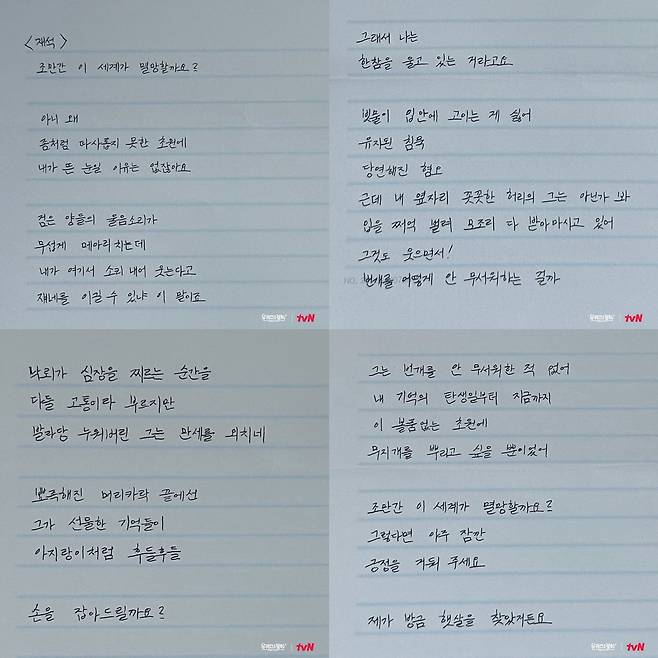 <재석>
조만간 이 세계가 멸망할까요?
아니 왜
좀처럼 따사롭지 못한 초원에
내가 뜬 눈일 이유는 없잖아요
검은 양들의 울음소리가
무섭게 메아리치는데
내가 여기서 소리 내어 웃는다고
쟤네를 이길 수 있냐 이 말이죠
tvN
그래서 나는
한참을 울고 있는 거라고요
빗물이 입안에 고이는 게 싫어
유지된 침묵
당연해진 혐오
근데 내 옆자리 꼿꼿한 허리의 그는 아닌가 봐
입을 쩌억 벌려 요조리 다 받아마시고 있어
그것도 웃으면서!
번개를 어떻게 안 무서워하는 걸까
NO.
tvN
낙뢰가 심장을 찌르는 순간을
다들 고통이라 부르지만
발라당 누워버린 그는 만세를 외치네
뾰족해진 머리카락 끝에선
그가 선물한 기억들이
아지랑이처럼 후들후들
손을 잡아드릴까요?
tvN
그는 번개를 안 무서워한 적 없어
내 기억의 탄생일부터 지금까지
이 볼품없는 초원에
무지개를 뿌리고 싶을 뿐이었어
조만간 이 세계가 멸망할까요?
그렇다면 아주 잠깐
긍정을 거둬 주세요
제가 방금 햇살을 찾았거든요
tvN